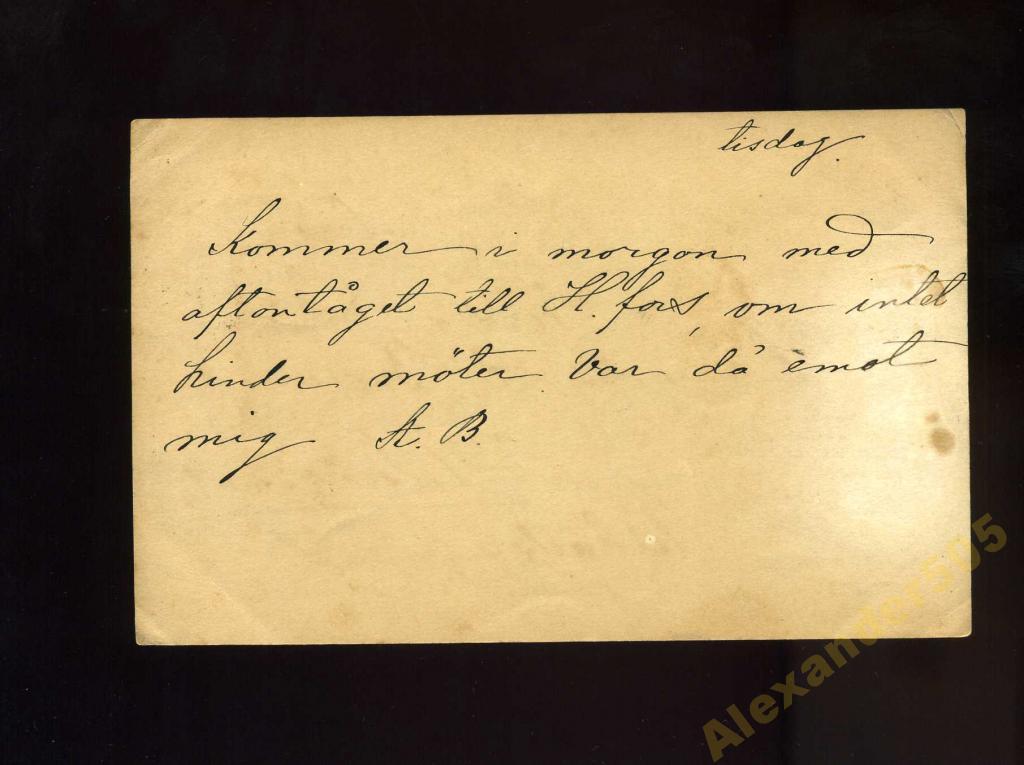 tisdag.
Kommer i morgon med
aftontåget till H.fors, om intet
hinder möter. Var då emot
mig A. B.
Alexander505